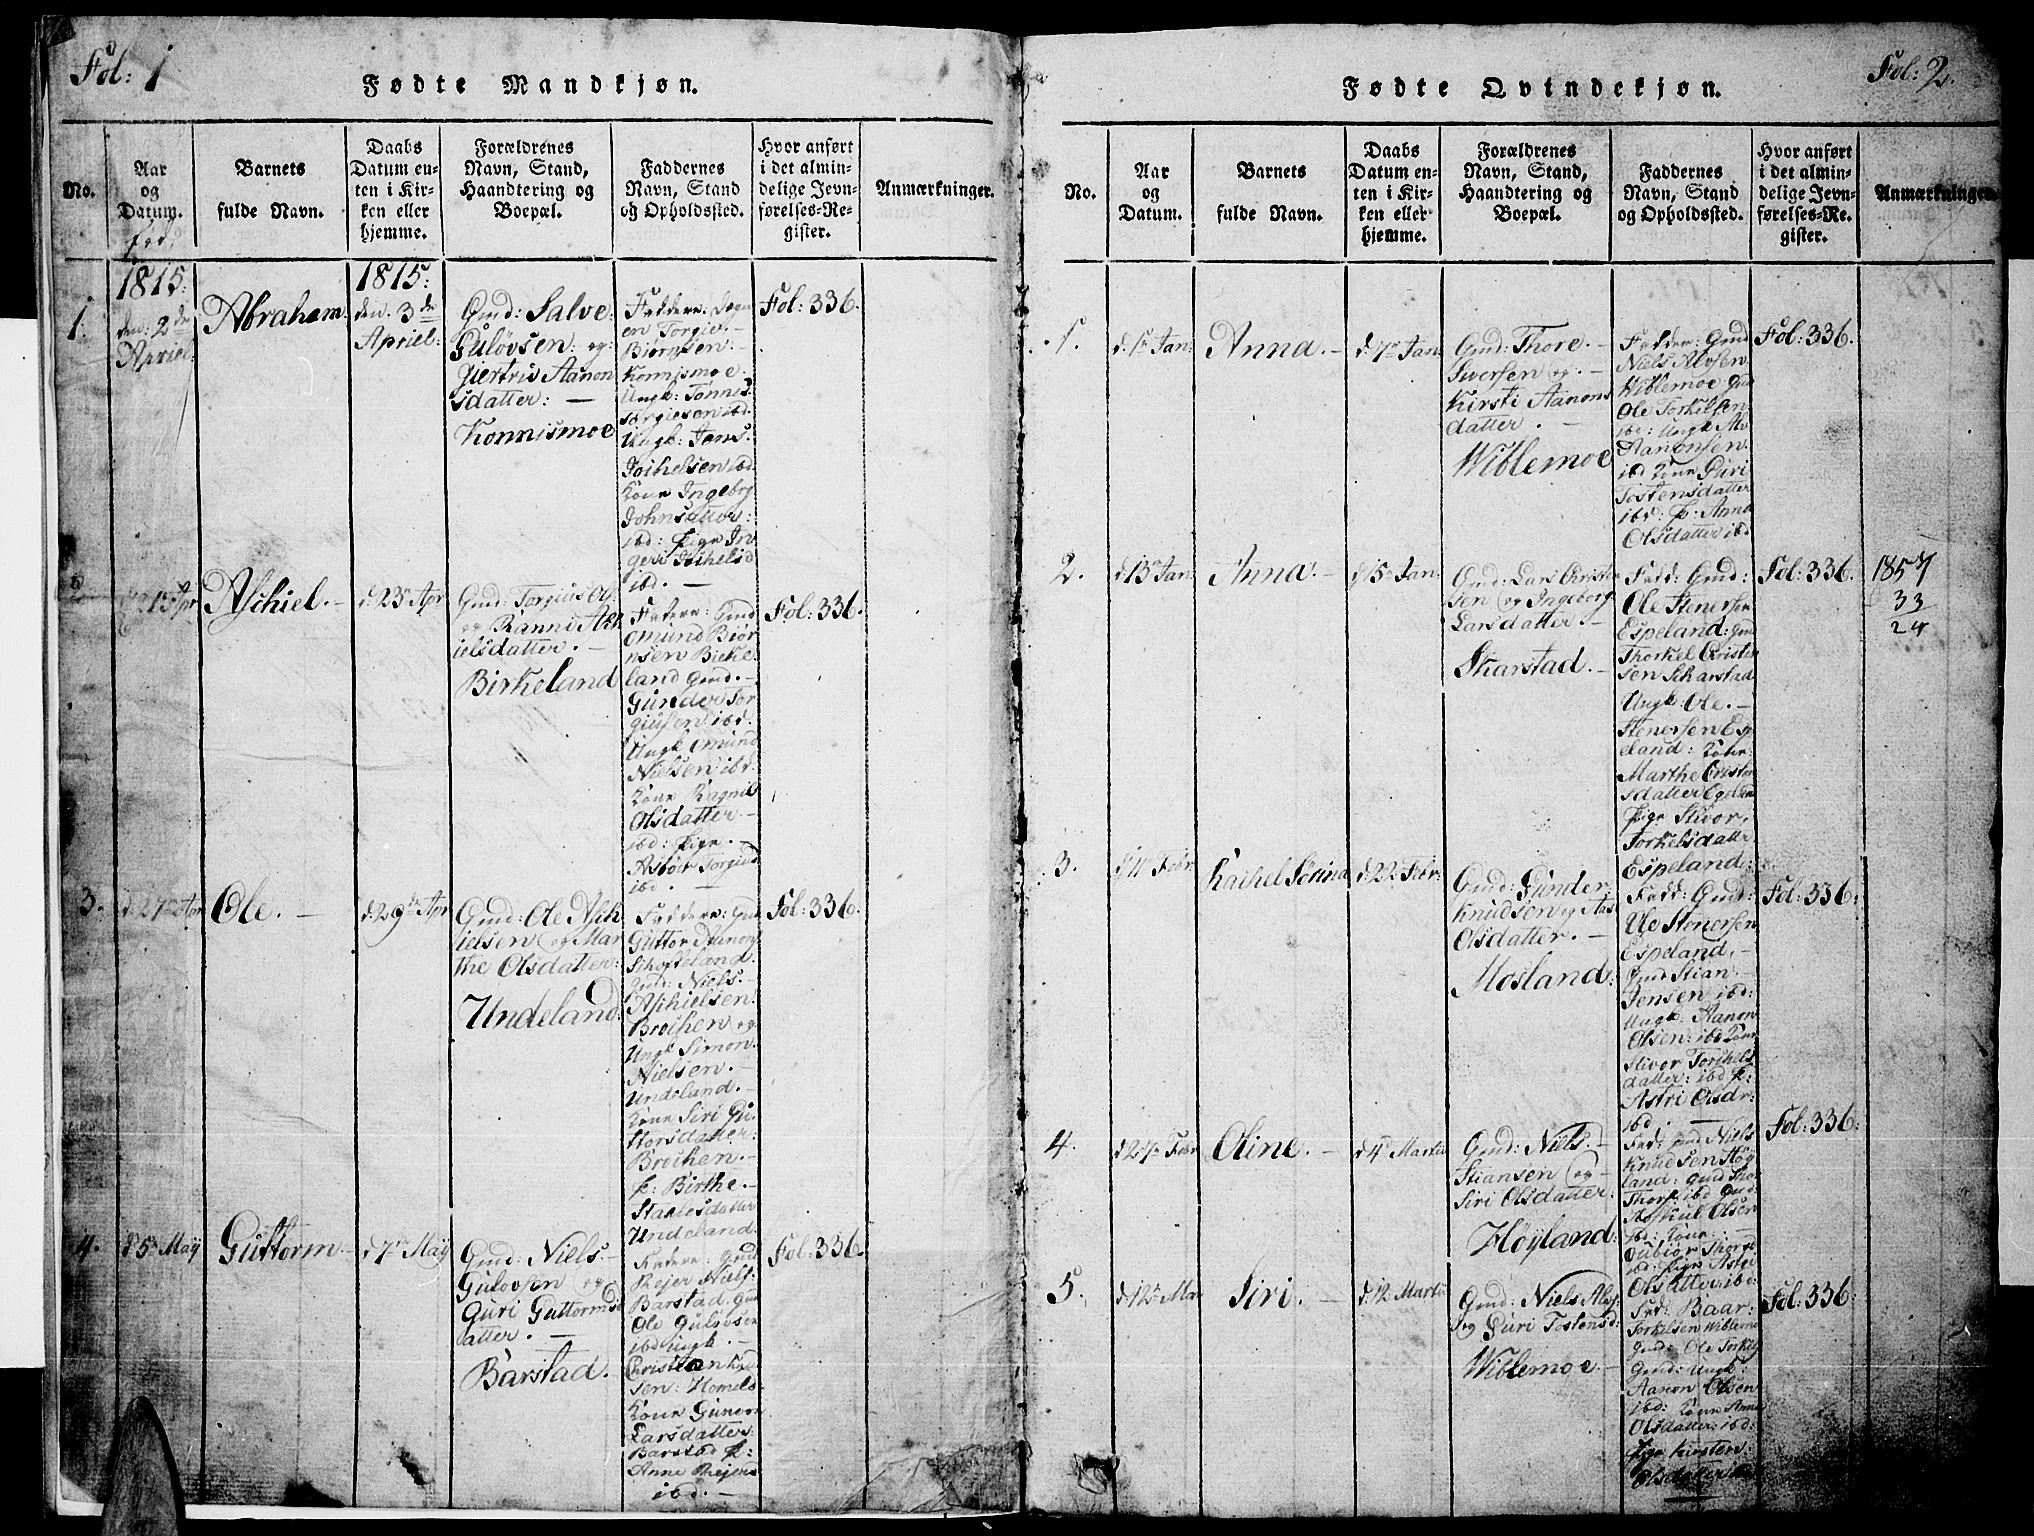 Fol: 1
Fødte Mandkjøn.
No.
Aar
og
Datum.
Barnets
fulde Navn.
Daabs
Datum en-
ten i Kir-
ken eller
hjemme.
Forældrenes
Navn, Stand,
Haandtering og
Boepæl.
Faddernes
Navn, Stand
og Opholdssted.
Hvor anført
i det almin-
delige Jevn-
førelses-Re-
gister.
Anmærkninger.
1.
1815.
den: 2de
Apriel:
Abraham
1815:
den. 3de
Apriel:
Gmd: Salve
Guløvsen: og
Giertrii Aanon
sdatter: —
Konnismoe
Faddere:
en Torgie
Biørnsen: —
Konnismoe.
Ungk: Tønnes
Torgiesen ibd.
Ungk: Jens
ibd
Kone Ingebor
Johnsdatter:
ibd: Pige In
ger
ibd. —
Fol: 336.
13 Apr
Aschiel. —
d. 23de Apr
Gmd: Torgius Ol
og Ranni Ask
ielsdatter. —
Birkeland
Faddere: Gmd
Omund Biør
nsen Birke
land Gmd. —
Gunder Tor
giusen ibd.
Ungk Omund
Nielsen ibd.
Kone Ragnil
Olsdatter —
ibd: Pige. —
Asbør Torgiusd
ibd. —
Fol: 336.
3.
d. 27de Apr
Ole. —
d. 29de Apr
Gmd: Ole Asch
ielsen og Mar
the Olsdatter:
Undeland:
Faddere: Gmd
Guttor Aanon
Schofteland.
Gmd: Niels. —
Aschielsen:
Broihen og
Ungk Simon
Nielsen. —
Undeland. —
Kone Siri Gu
ttorsdatter:
Broihen. —
P: Birthe. —
Staalesdatter
Undeland.
Fol: 336.
4.
d. 5te May
Guttorm —
d. 7de May
Gmd: Niels —
Guløvsen og
Guri Guttormsd
atter. —
Barstad.
Faddere: Gmd
Rejer Niels:
Barstad. Gmd
Ole Guløvsen
ibd Ungk. —
Christian Knud
sen: Homels
Kone Gunvor
Larsdatter:
Barstad P:
Anne Rejers
ibd. —
Fol: 336.
Fol: 2.
Fødte Qvindekjøn.
No.
Aar
og
Datum.
Barnets
fulde Navn.
Daabs
Datum en-
ten i Kir-
ken eller
hjemme.
Forældrenes
Navn, Stand,
Haandtering og
Boepæl.
Faddernes
Navn, Stand
og Opholdssted.
Hvor anført
i det almin-
delige Jevn-
førelses-Re-
gister.
Anmærkninger.
1.
d. 1te Jan:
Anna. —
d. 7de Jan
Gmd: Thore. —
Siversen og. —
Kirsti Aanons
datter. —
Wiblemoe
Faddere: Gmd
Niels Alvsen
Wiblemoe Gmd
Ole Torkelsen
ibd: Ungk Alv
Aanonsen.
ibd Kone Guri
Tostensdatter
ibd: P: Anna
Olsdatter ibd
Fol: 336.
2.
d. 13de Jan:
Anna. —
d. 15de Jan:
Gmd: Lars Christen
sen og Ingeborg
Larsdatter. —
Skarstad. —
Fadd: Gmd:
Ole Stenersen
Espeland: Gmd
Thorkel Christen
sen Scharstad
Ungk: Ole. —
Stenersen Esp
eland: Kone:
Marthe Christen
sdatter
Pige Stivor.
Torkelsdatter
Espeland:
Fol: 336.
1857
33
24
3.
d. 11te Febr:
Rachel Sørina
d. 22 Febr:
Gmd: Gunder
Knudsen og Aas
Olsdatter. —
Mosland:
Fadd: Gmd:
Ole Stenersen
Espeland. —
Gmd Stian —
Jensen ibd:
Ungk: Aanon
Olsen: ibd Kone
Stivor Torkels
datter: ibd P:
Astri Olsdr:
ibd. —
Fol: 336.
4.
d. 27de Febr
Oline. —
d. 4de Martii
Gmd: Niels. —
Stiansen og —
Siri Olsdatter:
Høyland:
Fad: Gmd Niels
Knudsen Høy
land: Gmd Tho
Thors: ibd Gmd:
Olsen
ibd: Kone: —
Gubiør Thorge
ibd: Pige Aase
Olsdatter: ibd:
Fol: 336.
5.
d. 12te Mar
Siri. —
d. 12 Martii
Gmd: Niels Alvs
og Guri Tostensd:
Wiblemoe —
Fad: Baar:
Torkelsen Wiblemoe
Gmd: Ole Torkel
Gmd: Ungk:
Aanon Olsen
ibd: Kone Anna
Olsdatter: ibd:
Pige Kirsten:
Olsdatter
Fol: 336.